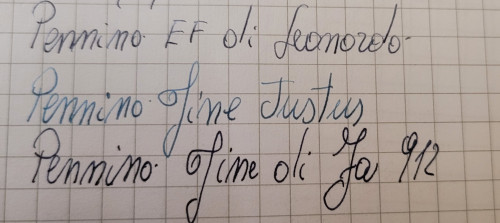 Pennino EF di Leonardo.
Pennino Fine Justus
Pennino Fine di Ja 912